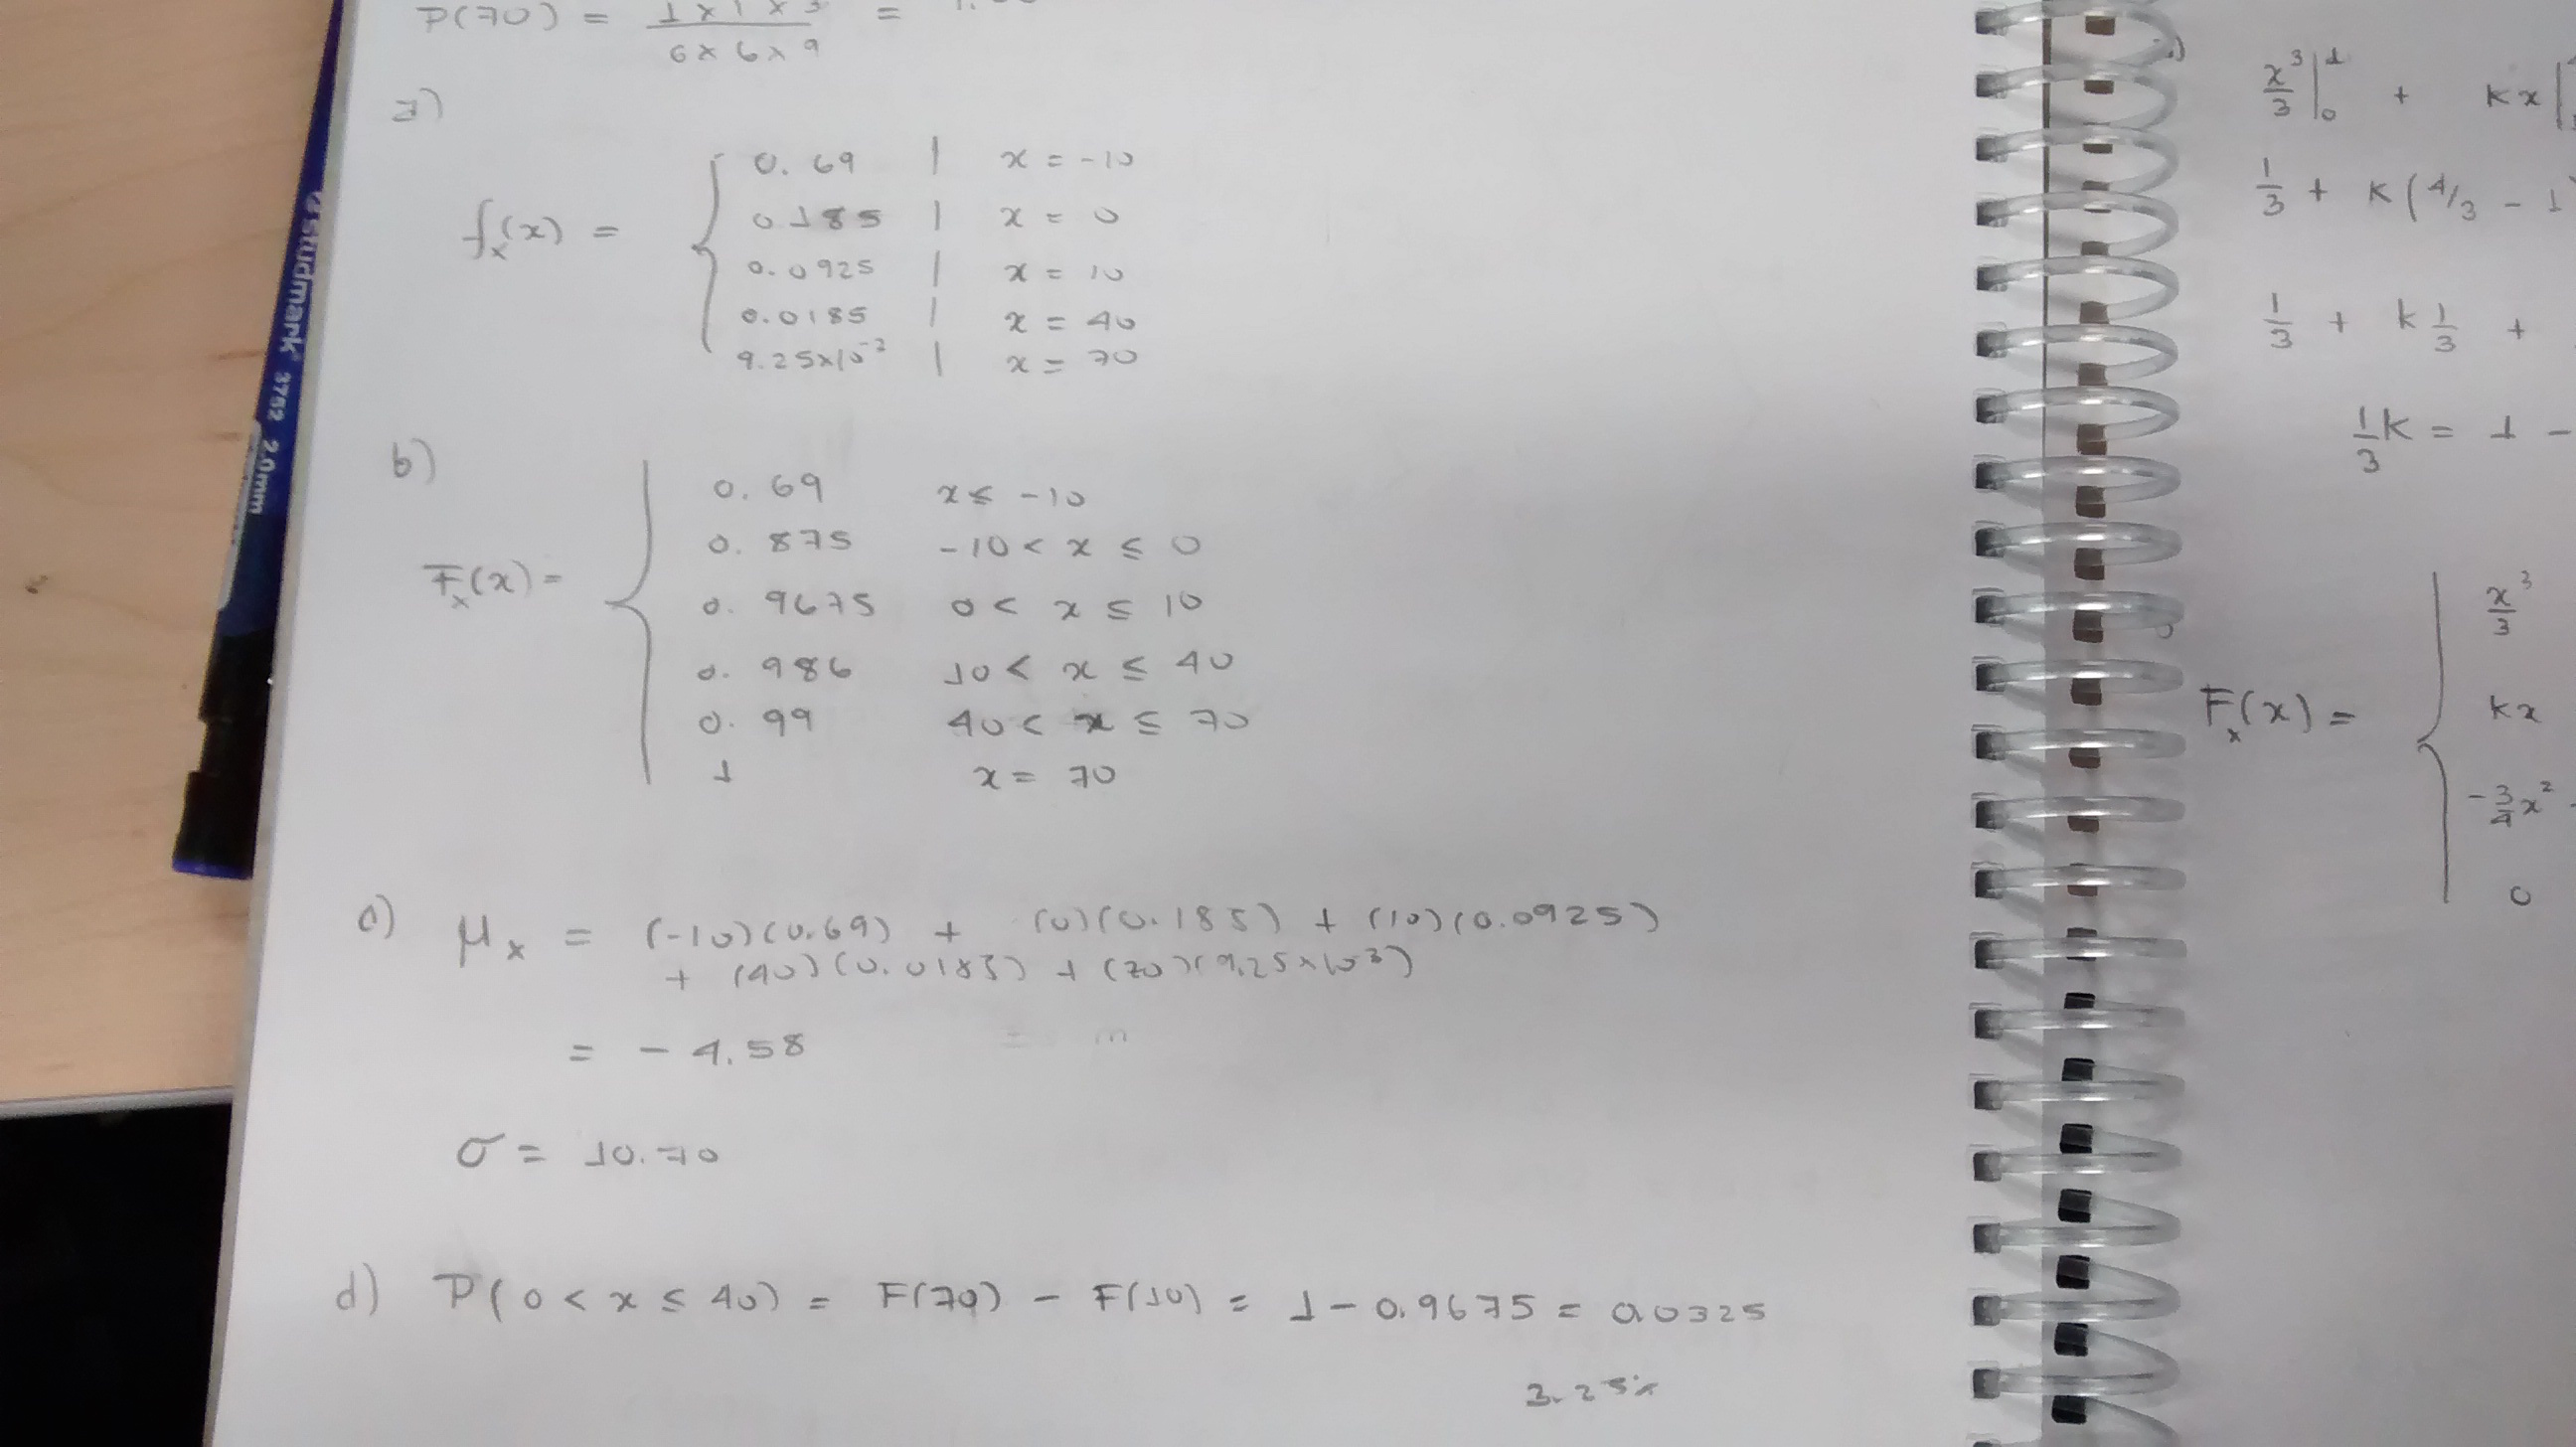 P(70) = 1 x 1 x 3 / 6 x 6 x 9 =
a)
f_x(x) = {
0.69 | x = -10
0185 | x = 0
0.0925 | x = 10
0.0185 | x = 40
9.25x10^-3 | x = 70
b)
F_x(x) = {
0.69 x ≤ -10
0.875 -10 < x ≤ 0
0.9675 0 < x ≤ 10
0.986 10 < x ≤ 40
0.99 40 < x ≤ 70
1 x = 70
c) μ_x = (-10)(0.69) + (0)(0.185) + (10)(0.0925)
+ (40)(0.0185) + (70)(9.25x10^-3)
= -4.58
σ = 10.70
d) P(0 < x ≤ 40) = F(70) - F(10) = 1 - 0.9675 = 0.0325
3.25%
estudmark 3752 2.0mm
x^3/3 |_0^1 + kx |
1/3 + k(4/3 - 1
1/3 + k 1/3 +
1/3 k = 1 -
F_x(x) = {
x^3/3
kx
-3/4 x^2
0